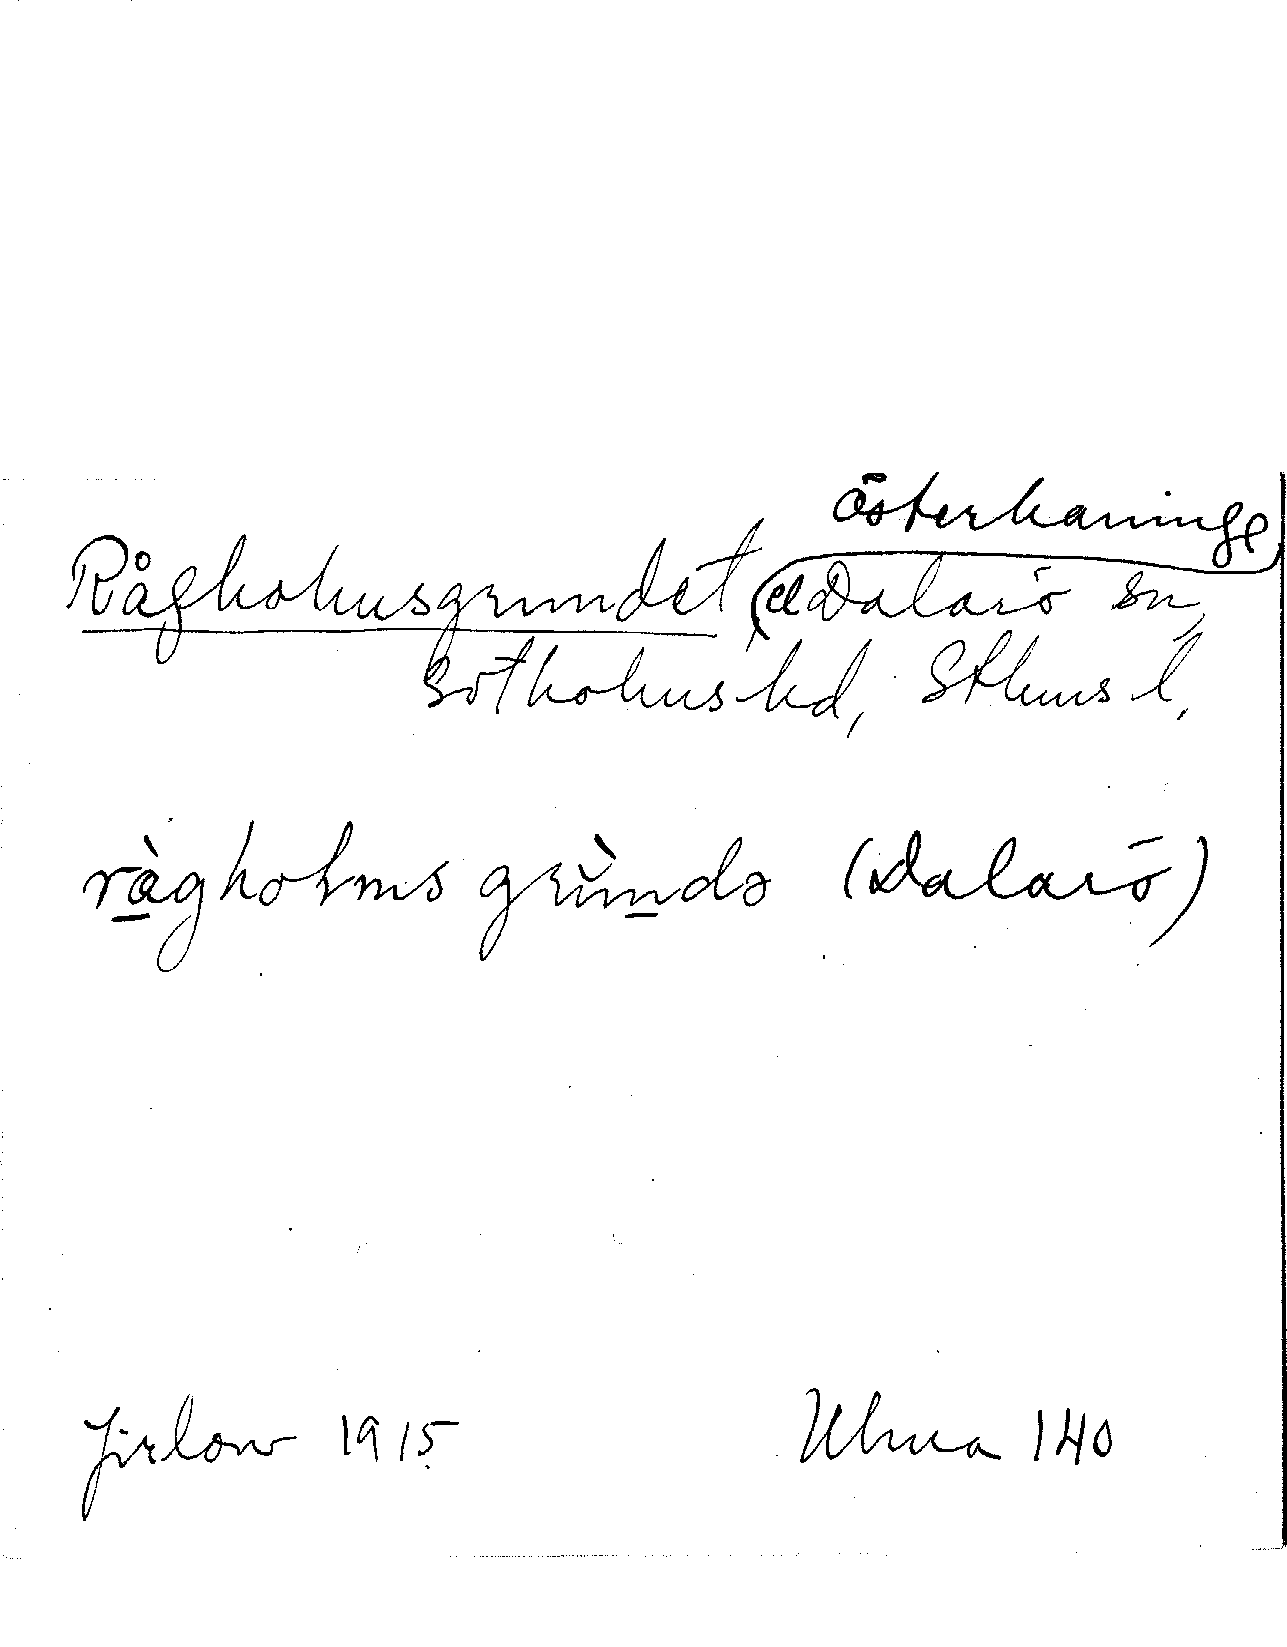 Österhaninge
Rågholmsgrundet (el Dalarö sn,
Sotholms hd, Sthms l,
rågholmsgrundə (Dalarö)
Jirlow 1915 Ulma 140